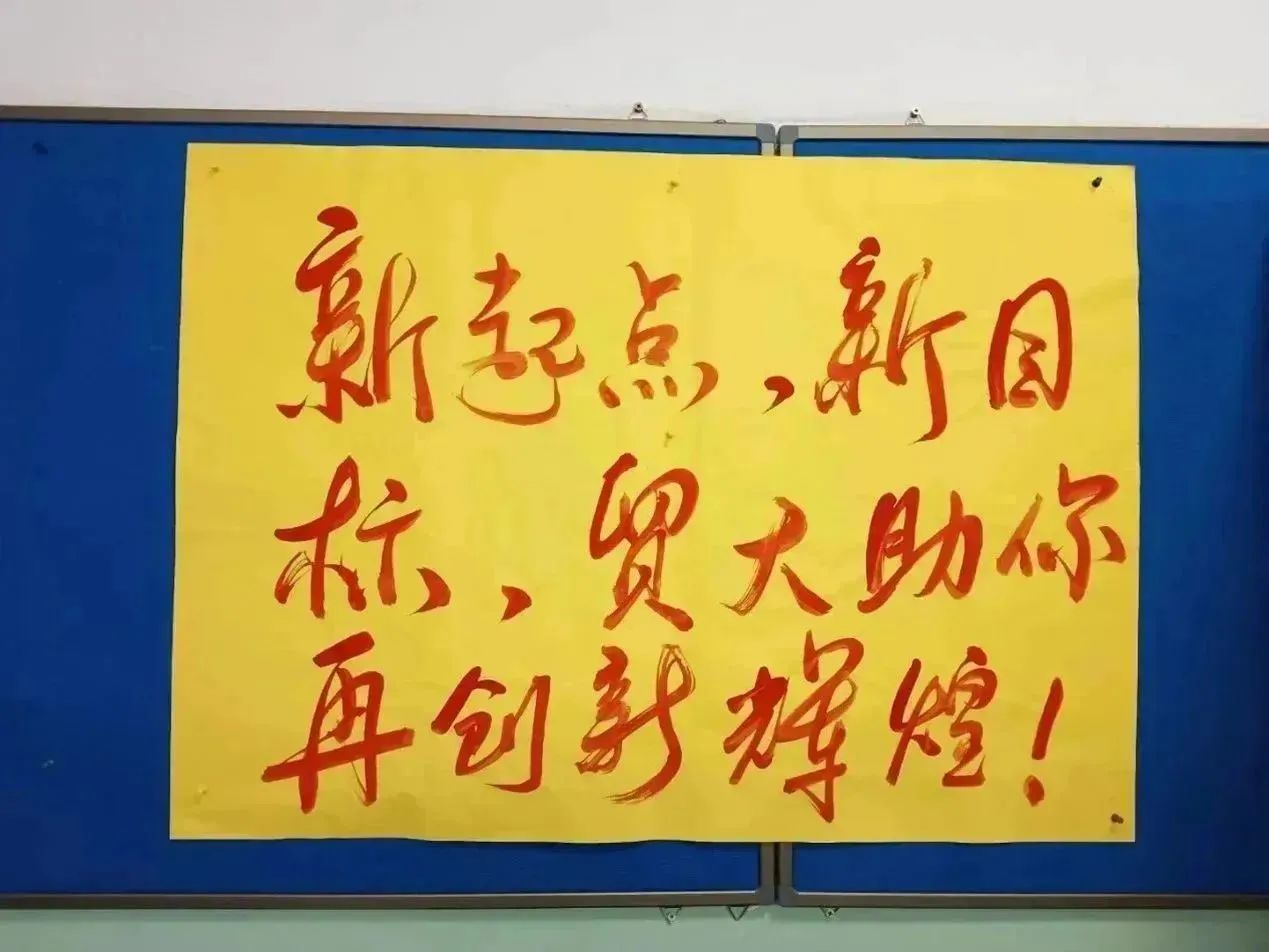 新起点、新目
标、贸大助你
再创新辉煌!